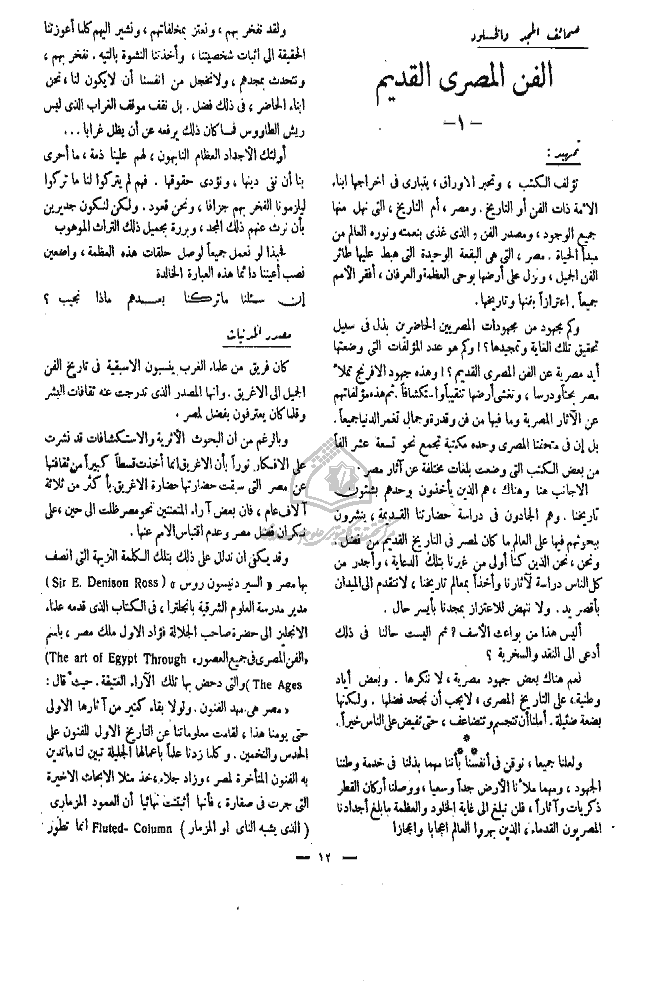 صحائف المجد والخلود
الفن المصرى القديم
— ١ —
تمهيد :
تؤلف الكتب ، وتحبر الاوراق ، يتبارى فى اخراجها ابناء
الامة ذات الفن أو التاريخ . ومصر ، أم التاريخ ، التى نهل منها
جميع الوجود ، ومصدر الفن ، الذى غذى بنعمته ونوره العالم من
مبدأ الحياة . مصر ، التى هى البقعة الوحيدة التى هبط عليها طائر
الفن الجميل ، ونزل على أرضها بوحى العظمة والعرفان ، أفقر الامم
جميعاً . اعتزازاً بفنها وتاريخها .
وكم مجهود من مجهودات المصريين الحاضرين بذل فى سبيل
تحقيق تلك الغاية وتمجيدها ؟! وكم هو عدد المؤلفات التى وضعتها
أيد مصرية عن الفن المصرى القديم ؟! وهذه جهود الافرنج تملأ
مصر بحثاً ودرسا ، وتغشى أرضها تنقيباً واستكشافاً . ثم هذه مؤلفاتهم
عن الآثار المصرية وما فيها من فن وقدرة وجمال تغمر الدنيا جميعاً .
بل إن فى متحفنا المصرى وحده مكتبة تجمع نحو تسعة عشر الفاً
من بعض الكتب التى وضعت بلغات مختلفة عن آثار مصر .
الاجانب هنا وهناك ، هم الذين يأخذون وحدهم بشئون
تاريخنا . وهم الجادون فى دراسة حضارتنا القديمة ، ينشرون
ببحوثهم فيها على العالم ما كان لمصر فى التاريخ القديم من فضل .
ونحن ، نحن الذين كنا أولى من غيرنا بتلك الدعاية ، وأجدر من
كل الناس دراسة لآثارنا وأخذاً بمعالم تاريخنا ، لا نتقدم الى الميدان
بأقصر يد . ولا ننهض للاعتزاز بمجدنا بأيسر حال .
أليس هذا من بواعث الأسف ؟ ثم اليست حالنا فى ذلك
أدعى الى النقد والسخرية ؟
نعم هناك بعض جهود مصرية ، لا ننكرها . وبعض أياد
وطنية ، على التاريخ المصرى ، لا يجب أن نجحد فضلها . ولكنها
بضعة ضئيلة . أملنا أن تتجسم وتتضاعف ، حتى تفيض على الناس خيراً .
* * *
ولعلنا جميعا ، نوقن فى أنفسنا بأننا مهما بذلنا فى خدمة وطننا
الجهود ، ومهما ملأنا الأرض جداً وسعيا ، ووصلنا أركان القطر
ذكريات وآثاراً ، فلن تبلغ الى غاية الخلود والعظمة ما بلغ أجدادنا
المصريون القدماء ، الذين بهروا العالم اعجابا واعجازا
ولقد نفخر بهم ، ونعتز بمخلفاتهم ، ونشير اليهم كلما أعوزتنا
الحقيقة الى اثبات شخصيتنا ، وأخذتنا النشوة بالتيه . نفخر بهم ،
ونتحدث بمجدهم ، ولا نخجل من انفسنا أن لا يكون لنا ، نحن
ابناء الحاضر ، فى ذلك فضل . بل نقف موقف الغراب الذى لبس
ريش الطاووس فما كان ذلك يرفعه عن أن يظل غرابا ...
أولئك الاجداد العظام النابهون ، لهم علينا ذمة ، ما أحرى
بنا أن نفى دينها ، ونؤدى حقوقها . فهم لم يتركوا لنا ما تركوا
ليلزمونا الفخر بهم جزافا ، ونحن قعود . ولكن لنكون جديرين
بأن نرث عنهم ذلك المجد ، وبررة بجميل ذلك التراث الموهوب
فحبذا لو نعمل جميعاً لوصل حلقات هذه العظمة ، واضعين
نصب أعيننا دائما هذه العبارة الخالدة
إن سئلنا ماتركنا بعدهم ماذا نجيب ؟
مصدر المدنيات
كان فريق من علماء الغرب ينسبون الاسبقية فى تاريخ الفن
الجميل الى الاغريق . وانها المصدر الذى تدرجت عنه ثقافات البشر
وقلما كان يعترفون بفضل لمصر .
وبالرغم من ان البحوث الأثرية والاستكشافات قد نشرت
على الافكار نوراً بأن الاغريق انما أخذت قسطاً كبيراً من ثقافتها
عن مصر التى سبقت حضارتها حضارة الاغريق بأكثر من ثلاثة
آلاف عام ، فان بعض آراء المتعنتين نحو مصر ظلت الى حين ، على
نكران فضل مصر وعدم اقتباس الامم عنها .
وقد يمكنى ان ندلل على ذلك بتلك الكلمة النزيهة التى انصف
بها مصر « السير دنيسون روس » ( Sir E. Denison Ross )
مدير مدرسة العلوم الشرقية بانجلترا ، فى الكتاب الذى قدمه علماء
الانجليز الى حضرة صاحب الجلالة فؤاد الاول ملك مصر ، باسم
«الفن المصرى فى جميع العصور» The art of Egypt Through)
The Ages) والتى دحض بها تلك الآراء العتيقة . حيث قال :
« مصر هى مهد الفنون . ولولا بقاء كثير من آثارها الاولى
حتى يومنا هذا ، لقامت معلوماتنا عن التاريخ الاول للفنون على
الحدس والتخمين . وكلما زدنا علماً باعمالها الجليلة تبين لنا ما تدين
به الفنون المتأخرة لمصر ، وزاد جلاء ، خذ مثلا الابحاث الاخيرة
التى جرت فى صقارة ، فأنها أثبتت نهائيا أن العمود المزمارى
( الذى يشبه الناى او المزمار ) Fluted- Column انما تطور
— ١٢ —